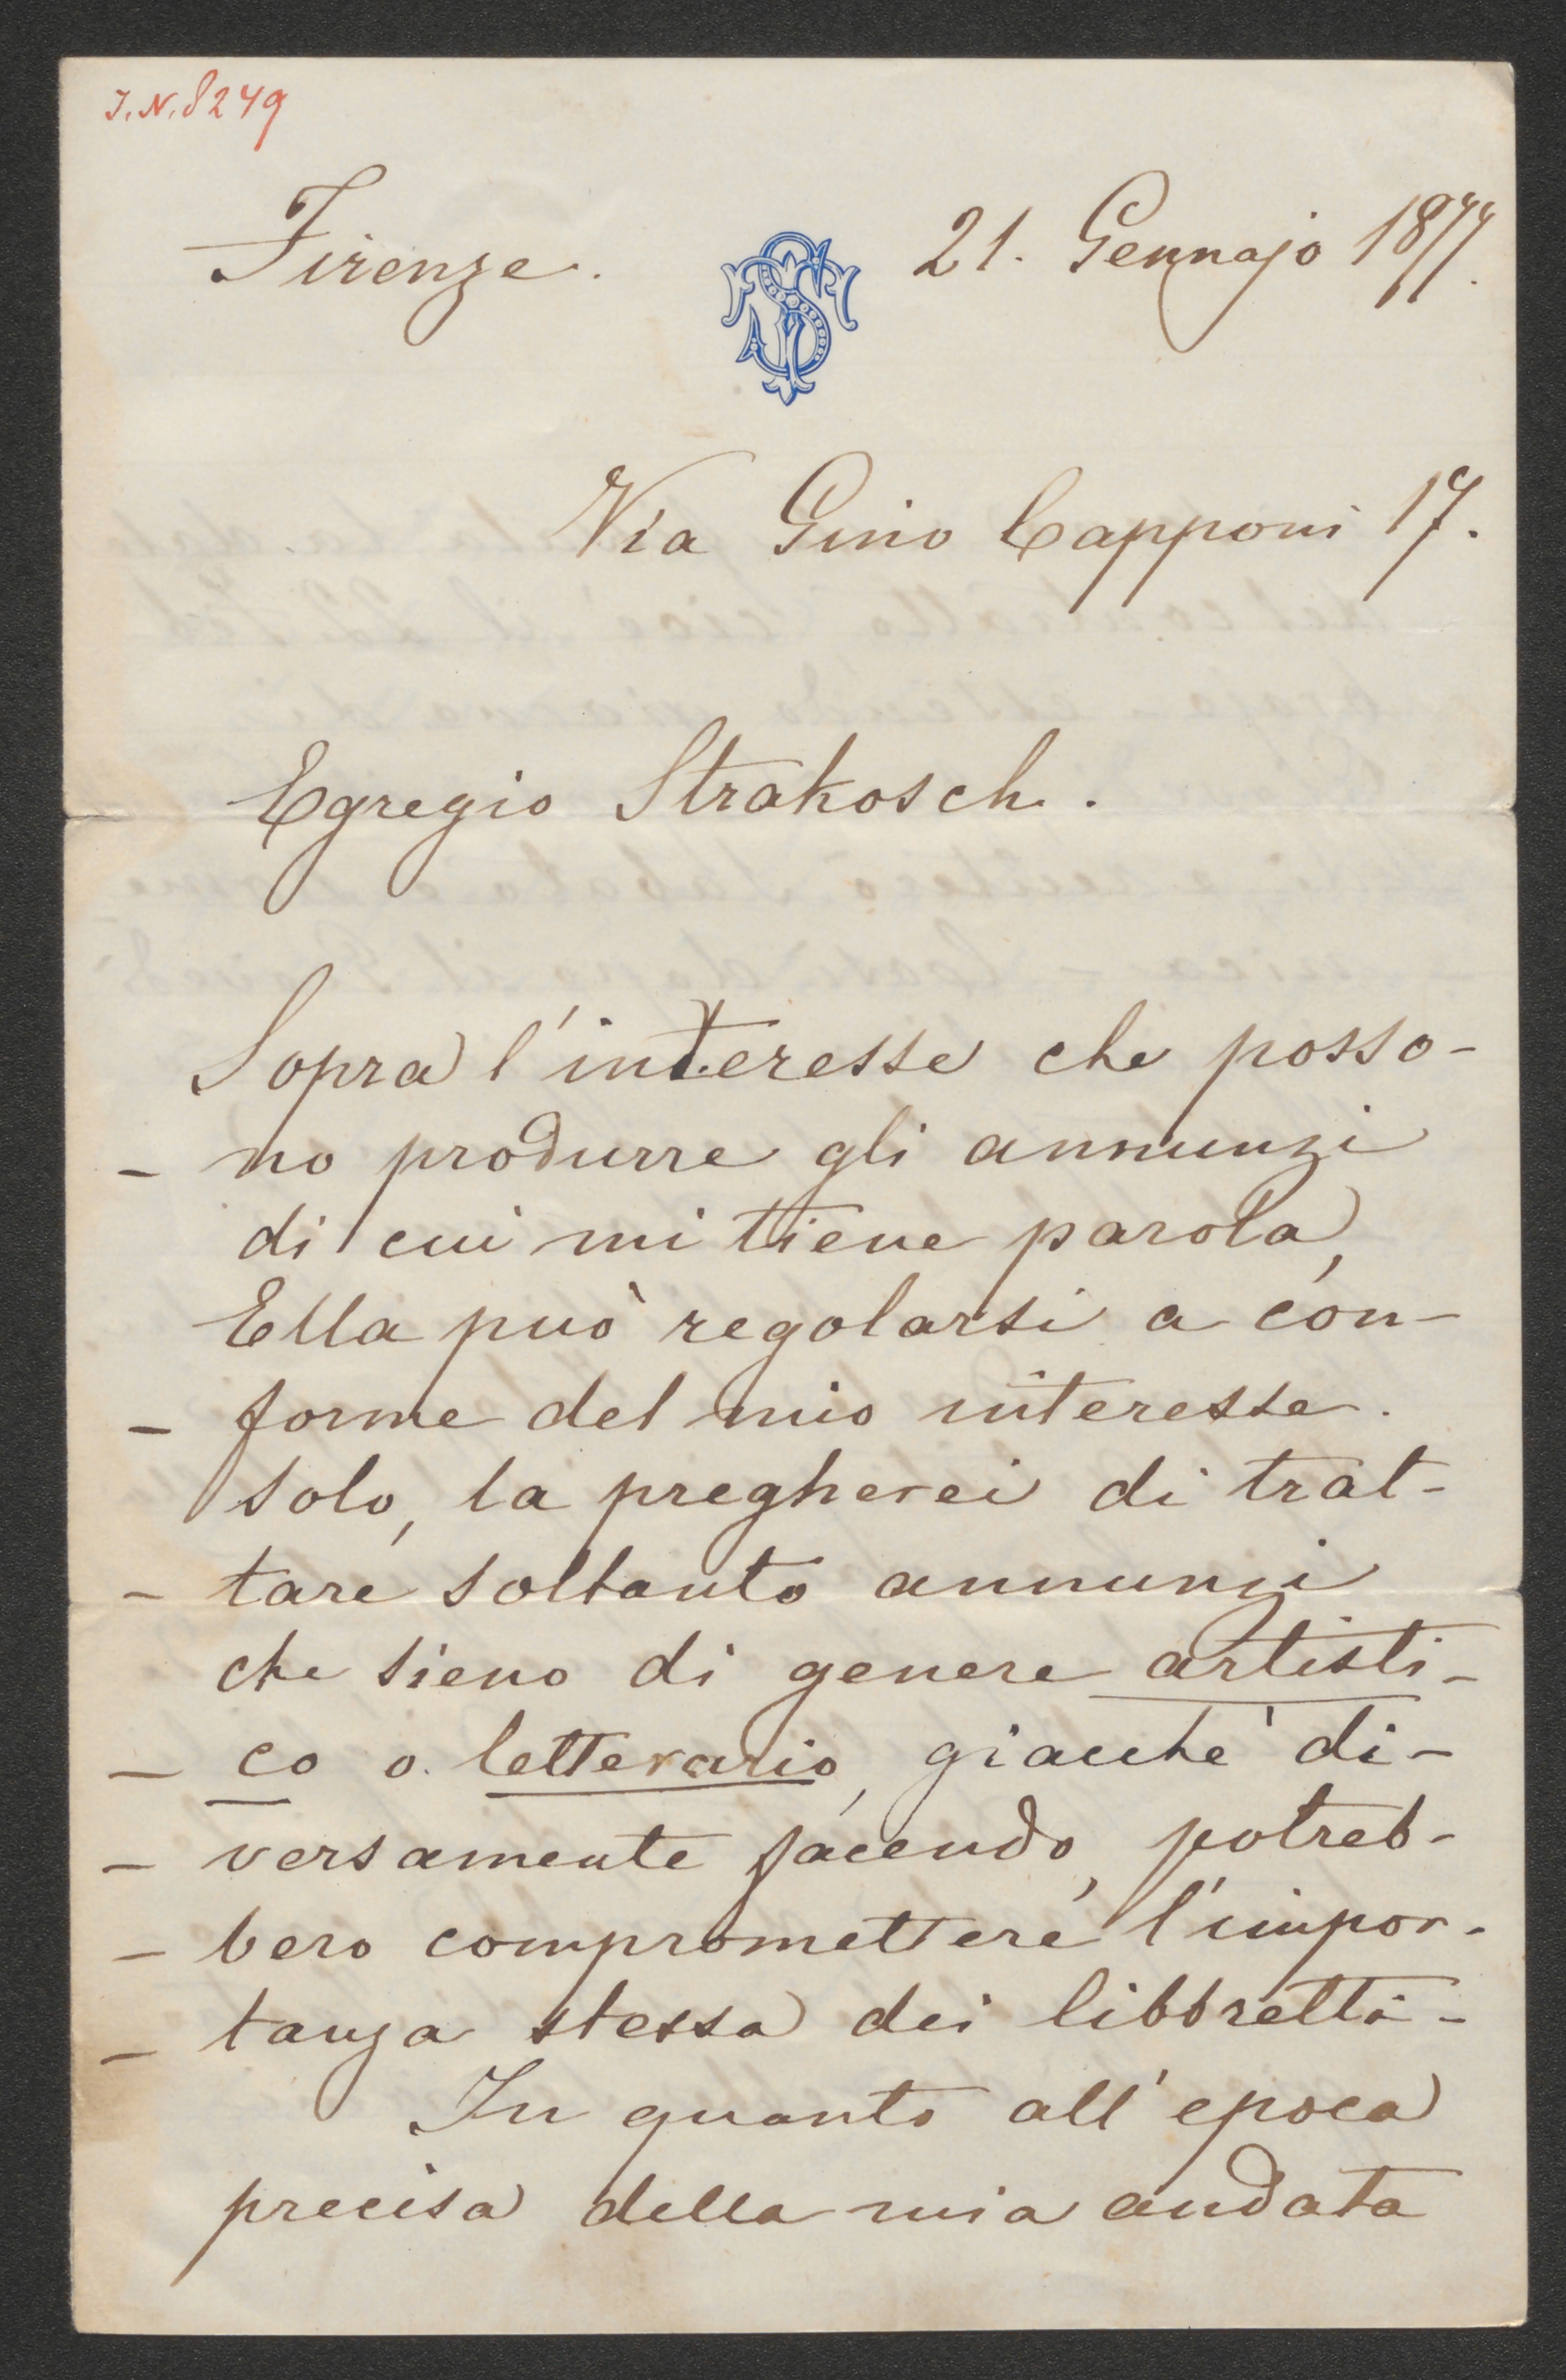 J.N. 8249
Firenze. 21. Gennajo 1877.
Via Gino Capponi 17.
Egregio Strakosch.
Sopra l'interesse che posso-
- no produrre gli annunzi
di cui mi tiene parola,
Ella può regolarsi a con-
- forme del mio interesse.
Solo, la pregherei di trat-
- tare soltanto annunzi
che sieno di genere artisti-
- co o letterario, giacchè di-
- versamente facendo, potreb-
- bero compromettere l'impor-
- tanza stessa dei libbretti -
In quanto all'epoca
precisa della mia andata